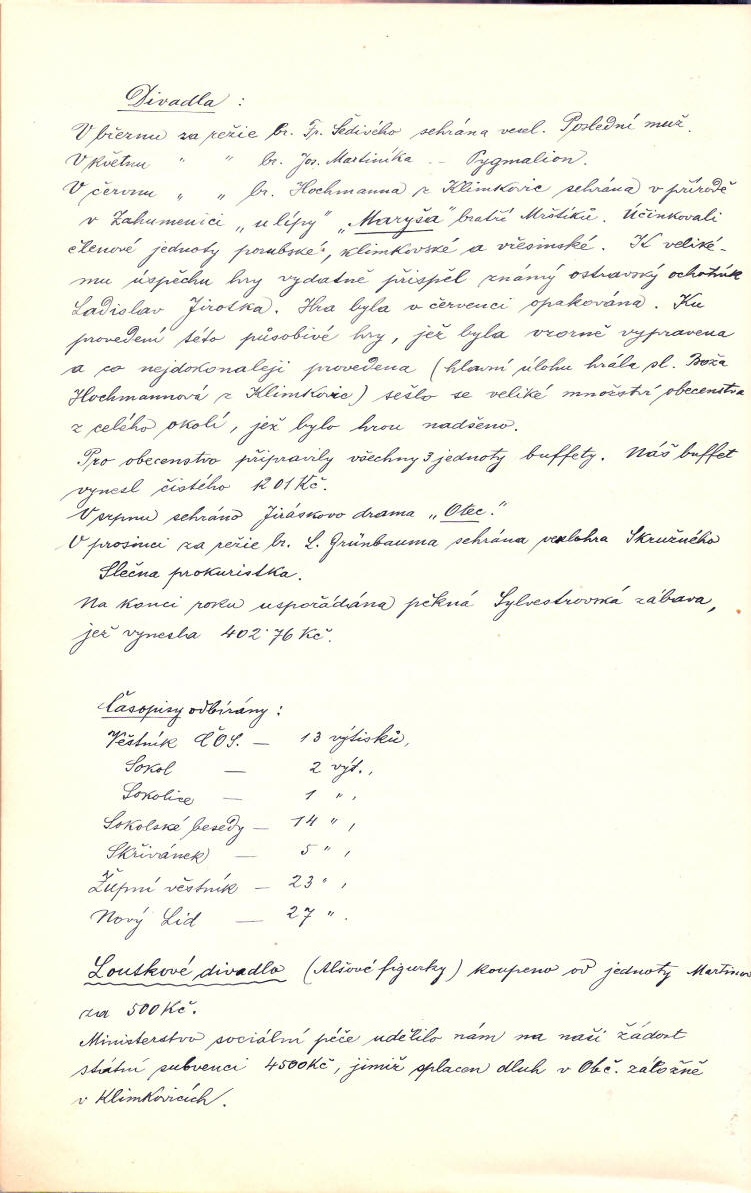 Divadla :
V březnu za režie br. Fr. Šedivého sehrána vesel. Poslední muž.
V květnu " " br. Jos. Martiníka -- Pygmalion.
V červnu " " br. Hochmanna z Klimkovic sehrána v přírodě
v Zahumenici „u lípy" „Maryša" bratří Mrštíků. Účinkovali
členové jednoty porubské, klimkovské a vřesinské. K veliké-
mu úspěchu hry vydatně přispěl známý ostravský ochotník
Ladislav Jirotka. Hra byla v červenci opakována. Ku
provedení této působivé hry, jež byla vzorně vypravena
a co nejdokonaleji provedena (hlavní úlohu hrála sl. Boža
Hochmannová z Klimkovic) sešlo se veliké množství obecenstva
z celého okolí, jež bylo hrou nadšeno.
Pro obecenstvo připravily všechny 3 jednoty buffety. Náš buffet
vynesl čistého 201 Kč.
V srpnu sehráno Jiráskovo drama „Otec."
V prosinci za režie br. L. Grünbauma sehrána veselohra Skružného
Slečna prokuristka.
Na konci roku uspořádána pěkná Sylvestrovská zábava,
jež vynesla 402·76 Kč.
Časopisy odbírány :
Věstník ČOS. — 13 výtisků,
Sokol — 2 výt.,
Sokolice — 1 " ,
Sokolské besedy — 14 " ,
Skřivánek — 5 " ,
Župní věstník — 23 " ,
Nový Lid — 27 " .
Loutkové divadlo (Alšovy figurky) koupeno od jednoty Martinov
za 500 Kč.
Ministerstvo sociální péče udělilo nám na naši žádost
státní subvenci 4500 Kč, jimiž splacen dluh v Obč. záložně
v Klimkovicích.